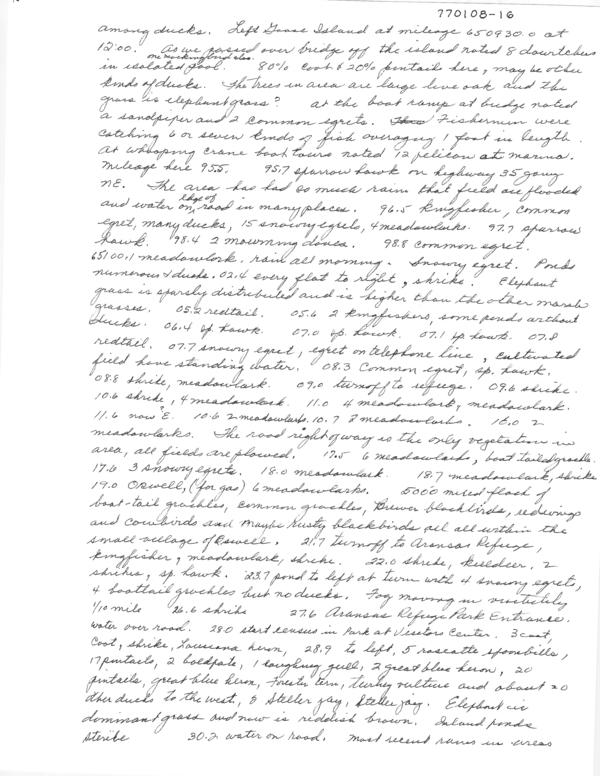 770108-16
among ducks. Left Goose Island at mileage 650930.0 at
12:00. As we passed over bridge off the island noted 8 dowitchers
on mockingbird also.
in isolated pool. 80% coot & 20% pintail here, maybe other
kinds of ducks. The trees in area are large live oak and the
grass is elephant grass? at the boat ramp at bridge noted
a sandpiper and 2 common egrets. Fishermen were
catching 6 or seven kinds of fish averaging 1 foot in length.
At whooping crane boat tours noted 12 pelican at marina.
mileage here 95.5. 95.7 sparrow hawk on highway 35 going
NE. The area has had so much rain that field are flooded
and water on edge of road in many places. 96.5 kingfisher, common
egret, many ducks, 15 snowy egrets, 4 meadowlarks. 97.7 sparrow
hawk. 98.4 2 mourning doves. 98.8 common egret.
65100.1 meadowlark. rain all morning. Snowy egret. Ponds
numerous & ducks. 02.4 every flat to right, shrike. Elephant
grass is sparsly distributed and is higher than the other marsh
grasses. 05.2 redtail. 05.6 2 kingfishers, some ponds without
ducks. 06.4 sp. hawk. 07.0 sp. hawk. 07.1 sp hawk. 07.8
redtail. 07.7 snowy egret, egret on telephone line, cultivated
field have standing water. 08.3 Common egret, sp. hawk.
08.8 shrike, meadowlark. 09.0 turnoff to refuge. 09.6 shrike.
10.6 shrike, 4 meadowlark. 11.0 4 meadowlark, meadowlark.
11.6 now E. 10.6 2 meadowlarks. 10.7 8 meadowlarks. 16.0 2
meadowlarks. The road right of way is the only vegetation in
area, all fields are plowed. 17.5 6 meadowlarks, boat tailed grackle.
17.6 3 snowy egrets. 18.0 meadowlark. 18.7 meadowlark, shrike
19.0 (for gas) 6 meadowlarks. 5000 mixed flock of
boat-tail grackles, common grackles, Brewer blackbirds, redwings
and cowbirds and maybe rusty blackbirds all all within the
small village of 21.7 turnoff to Aransas Refuge,
kingfisher, meadowlark, shrike. 22.0 shrike, killdeer, 2
shrikes, sp. hawk. 23.7 pond to left at turn with 4 snowy egrets,
4 boattail grackles but no ducks. Fog moving in visibility
1/10 mile 26.6 shrike 27.6 Aransas Refuge Park Entrance.
water over road. 28.0 start census in Park at Visitors Center. 3 coot,
coot, shrike, Louisiana heron, 28.9 to left, 5 roseatte spoonbills,
17 pintails, 2 baldpate, 1 laughing gull, 2 great blue heron, 20
pintails, great blue heron, Forsters tern, turkey vulture and about 20
other ducks to the west, 8 Steller jay, Steller jay. Elephant is
dominant grass and now is reddish brown. Inland ponds
sterile 30.2 water on road. most recent rains in areas